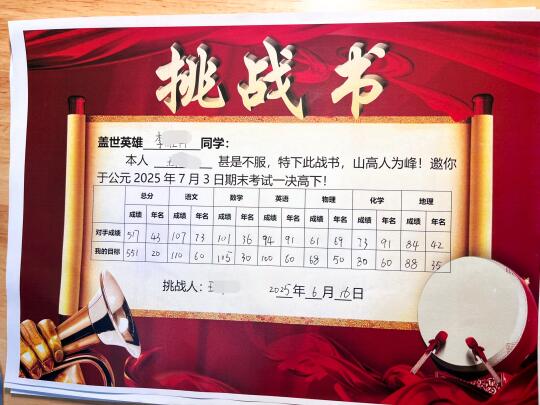 挑战书
盖世英雄 李 同学：
本人 王 甚是不服，特下此战书，山高人为峰！邀你
于公元 2025 年 7 月 3 日期末考试一决高下！
总分 语文 数学 英语 物理 化学 地理
成绩 年名 成绩 年名 成绩 年名 成绩 年名 成绩 年名 成绩 年名 成绩 年名
对手成绩 517 43 107 73 101 36 94 91 61 69 73 91 84 42
我的目标 551 20 110 60 115 30 100 60 68 50 80 60 88 35
挑战人：王 2025年6月16日